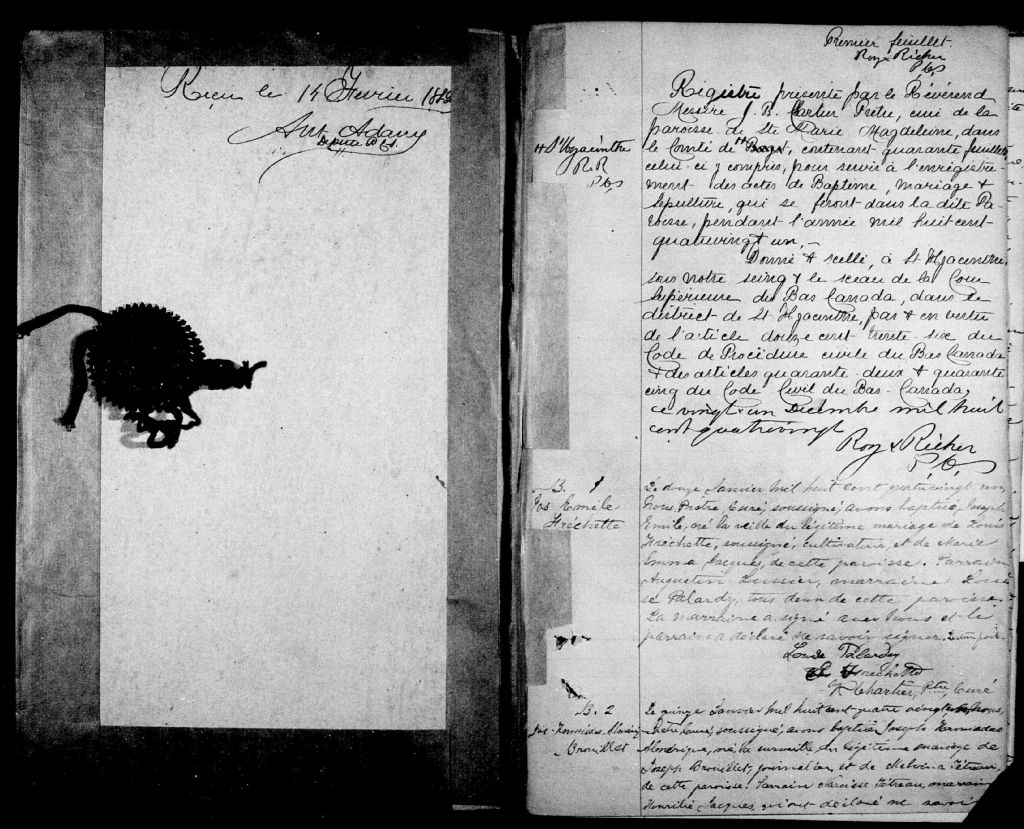 Reçu le 14 Fevrier 188
Ant Adam
Député P.C.S.
Premier feuillet.
Roy & Richer
P.C.S.
Registre présenté par le Révérend
Messire J. B. Chartier Prêtre, curé de la
paroisse de Ste Marie Magdeleine, dans
# St Hyacinthe
R&R
P.C.S.
le Comté de # Bagot, contenant quarante feuillets
celui-ci y compris, pour servir à l'enregistre-
ment des actes de Baptème, mariage &
sépulture, qui se feront dans la dite Pa-
roisse, pendant l'année mil huit cent
quatrevingt un,-
Donné & scellé, à St Hyacinthe,
sous notre seing & le sceau de la Cour
Supérieure du Bas Canada, dans le
district de St Hyacinthe, par & en vertu
de l'article douze cent trente six du
Code de Procédure civile du Bas Canada
& des articles quarante-deux & quarante
cinq du Code Civil du Bas-Canada,
ce vingt-un Decembre mil huit
cent quatrevingt
Roy & Richer
P.C.S.
B. 1
Jos Emile
Fréchette
Le douze Janvier mil huit cent quatre vingt un,
Nous Prêtre Curé, soussigné, avons baptisé, Joseph
Emile, né la veille du légitime mariage de Louis
Fréchette, soussigné, cultivateur, et de Marie
Emma Jacques, de cette paroisse. Parrain
Augustin Lussier, marraine Loui-
se Palardy, tous deux de cette paroisse.
La marraine a signé avec nous et le
parrain a déclaré ne savoir signer.
Louise Palardy
L Fréchette
Chartier, Ptre, Curé
B. 2
Brouillet
Le quinze Janvier mil huit cent quatre vingt un, nous,
Prêtre Curé, soussigné, avons baptisé Joseph
né la surveille du légitime mariage de
Joseph Brouillet, journalier, et de Melvina Tétreau,
de cette paroisse. Parrain Narcisse Tétreau, marraine
Jacques, qui ont déclaré ne savoir